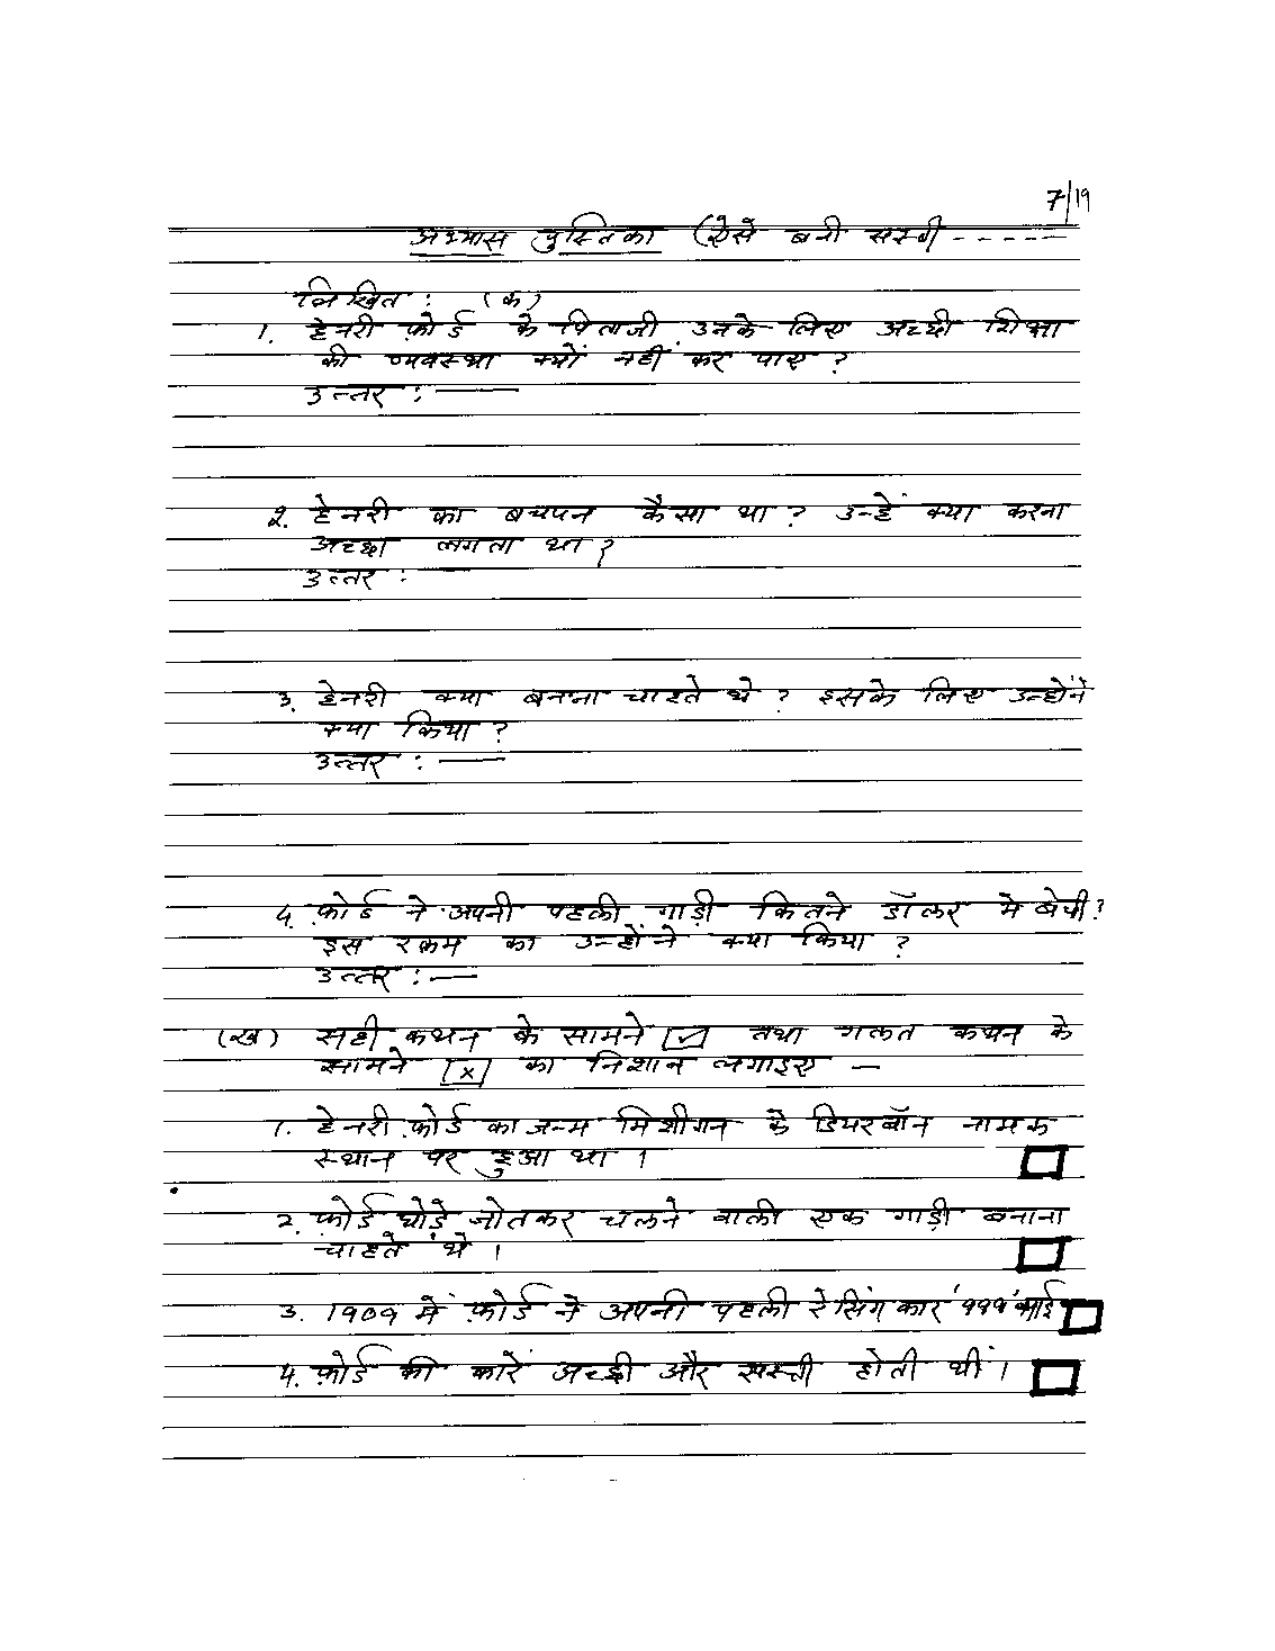 7/19
अभ्यास पुस्तिका (ऐसे बनी सस्ती - - - - -
लिखित : (क)
1. हेनरी फ़ोर्ड के पिताजी उनके लिए अच्छी शिक्षा
की व्यवस्था क्यों नहीं कर पाए ?
उत्तर : —
2. हेनरी का बचपन कैसा था ? उन्हें क्या करना
अच्छा लगता था ?
उत्तर :
3. हेनरी क्या बनना चाहते थे ? इसके लिए उन्होंने
क्या किया ?
उत्तर : —
4. फ़ोर्ड ने अपनी पहली गाड़ी कितने डॉलर मे बेची ?
इस रक़म का उन्होंने क्या किया ?
उत्तर : —
(ख) सही कथन के सामने [✓] तथा गलत कथन के
सामने [x] का निशान लगाइए —
1. हेनरी फ़ोर्ड का जन्म मिशीगन के डियरबॉन नामक
स्थान पर हुआ था ।
2. फ़ोर्ड घोड़े जोतकर चलने वाली एक गाड़ी बनाना
चाहते थे ।
3. १९०१ में फ़ोर्ड ने अपनी पहली रेसिंग कार '१११'
4. फ़ोर्ड की कारें अच्छी और सस्ती होती थीं ।